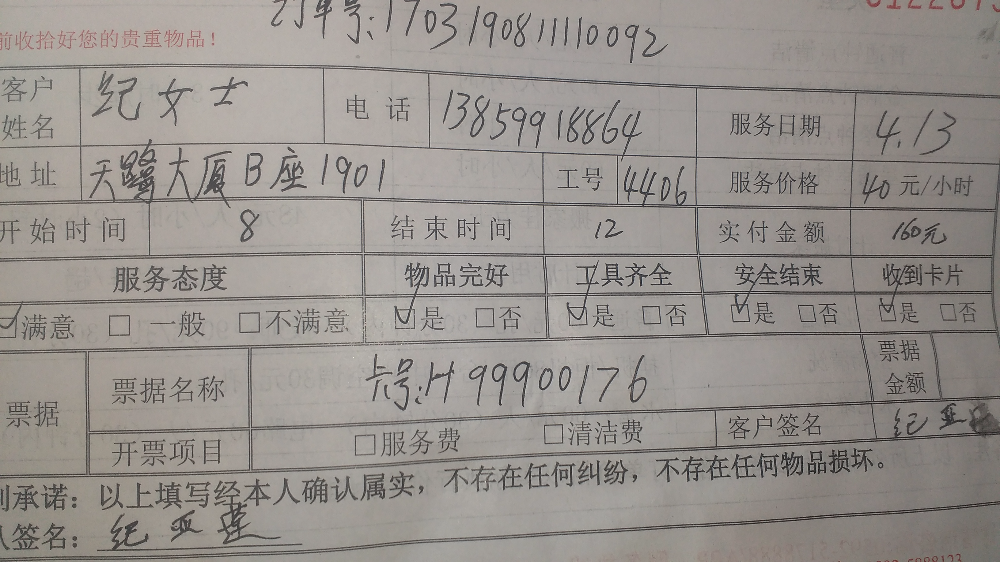 订单号:1703190811110092
前收拾好您的贵重物品!
客户姓名 纪女士 电话 13859918864 服务日期 4.13
地址 天鹭大厦B座1901 工号 4406 服务价格 40元/小时
开始时间 8 结束时间 12 实付金额 160元
服务态度 物品完好 工具齐全 安全结束 收到卡片
☑满意 □一般 □不满意 ☑是 □否 ☑是 □否 ☑是 □否 ☑是 □否
票据 票据名称 卡号:H99900176 票据金额
开票项目 □服务费 □清洁费 客户签名 纪亚
承诺:以上填写经本人确认属实,不存在任何纠纷,不存在任何物品损坏。
签名:纪亚莲